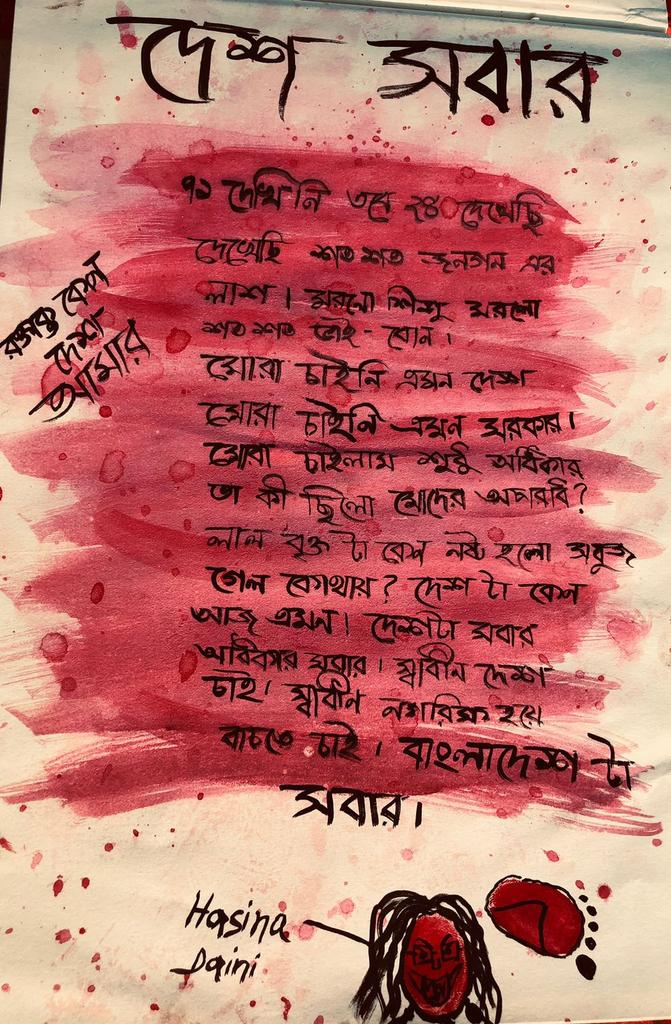 দেশ সবার
৭১ দেখিনি তবে ২৪ দেখেছি
দেখেছি শত শত জনগন এর
লাশ। মরলো শিশু মরলো
শত শত ভাই-বোন।
মোরা চাইনি এমন দেশ
মোরা চাইনি এমন সরকার।
মোরা চাইলাম শুধু অধিকার
তা কী ছিলো মোদের অপরাধ?
লাল বৃত্ত টা কেন নষ্ট হলো সবুজ
গেল কোথায়? দেশ টা কেন
আজ এমন। দেশটা সবার
অধিকার সবার। স্বাধীন দেশ
চাই। স্বাধীন নাগরিক হয়ে
বাচতে চাই। বাংলাদেশ টা
সবার।
রক্তাক্ত কেন
দেশ
আমার
Hasina
Daini